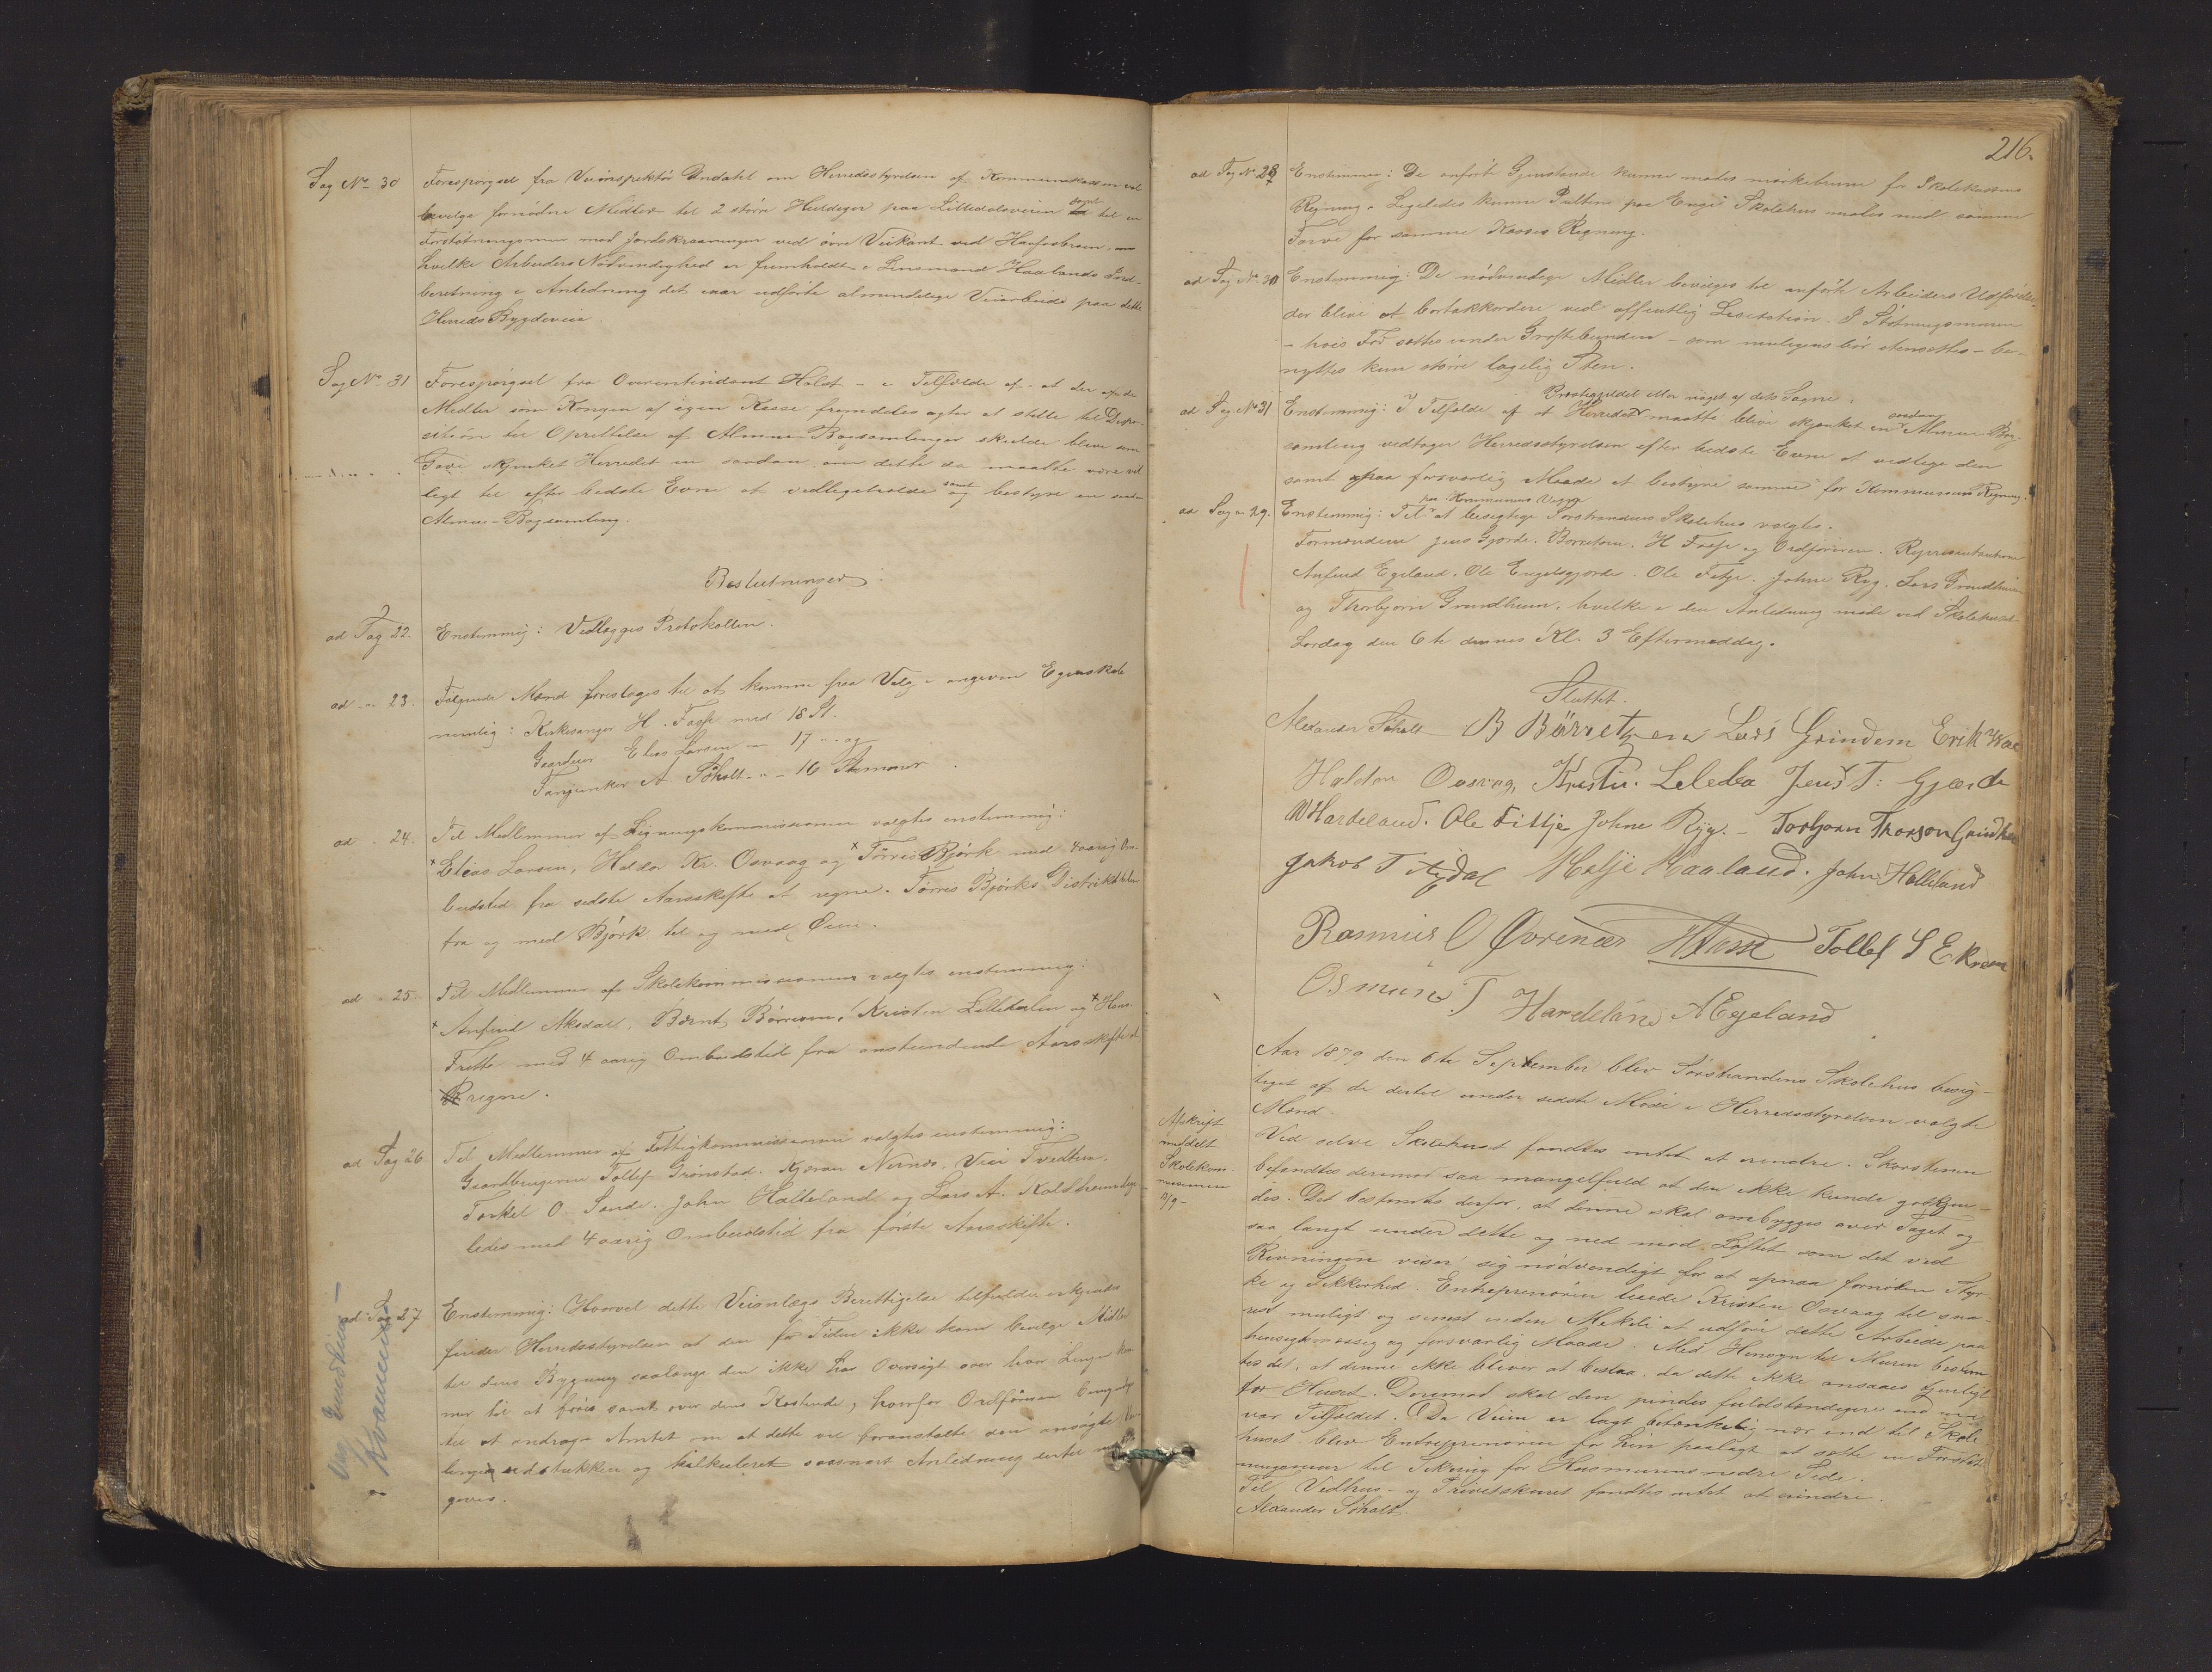 Sag No 30 Forespørgsel fra Veiinspektør Undahl om Herredsstyrelsen af Kommunekassen vil
bevilge fornødne Midler til 2 større Huldeger paa Lilledalsveien samt til en
Forstøtningsmur med Jordskraaninger ved øvre Veikant ved
hvilke Arbeiders Nødvendighed er fremholdt i Lensmand Haalands Ind-
beretning i Anledning det iaar udførte almindelige Veiarbeide paa dette
Herreds Bygdeveie.
Sag No 31 Forespørgsel fra Overintendant Holst – i Tilfælde af at der af de
Midler som Kongen af egen Kasse fremdeles agter at stille til Dispo-
sition til Oprettelse af Almue-Bogsamlinger skulde blive som
Gave skjænket Herredet en saadan, om dette da maatte være vil-
ligt til efter bedste Evne at vedligeholde samt bestyre en saadan
Almue-Bogsamling.
Beslutninger:
ad Sag 22. Enstemmig: Vedlægges Protokollen.
ad " 23. Følgende Mænd foreslages til at komme paa Valg i angiven Egenskab
nemlig: Kirkesanger H. Fasse med 18 St.
Gaardmr Elias Larsen – 17 " og
Fanejunker A Søholt " – 16 Stemmer.
ad " 24. Til Medlemmer af Ligningskommissionen valgtes enstemmig:
Elias Larsen, Haldor Kr. Osvaag og Tørris Bjørk med 4aarig Om-
budstid fra sidste Aarsskifte at regne. Tørris Bjørks Distrikt bliver
fra og med Bjørk til og med Øien.
ad " 25. Til Medlemmer af Skolekommissionen valgtes enstemmig:
Anfind Aksdal, Bernt Børresen, Kristen Lilledalen og Hans
Frette med 4 aarig Ombudstid fra anstundende Aarsskifte at
regne.
ad Sag 26 Til Medlemmer af Fattigkommissionen valgtes enstemmig:
Gaardbrugerne Tollef Grønstad, Kjøran Nernæs, Vier Tvedten,
Torkel O. Sande, John Halleland og Lars A. Kaldheim lige-
ledes med 4 aarig Ombudstid fra første Aarsskifte.
ad Sag 27 Enstemmig: Hvorvel dette Veianlægs Berettigelse tilfulde erkjendes
finder Herredsstyrelsen at den for Tiden ikke kan bevilge Midler
til dens Bygning saalænge den ikke har Oversigt over hvor Linjen kom-
mer til at føres samt over dens Kostende, hvorfor Ordføreren bemyndiges
til at andrage Amtet om at dette vil foranstalte den ansøgte Vei-
linje udstukken og kalkuleret saasnart Anledning dertil
gives.
216.
ad Sag No 28 Enstemmig: De anførte Gjenstande kunne males mørkebrune for Skolekassens
Regning. Ligeledes kunne Pultene paa Enge Skolehus males med samme
Farve for samme Kasses Regning.
ad Sag No 30 Enstemmig: De nødvendige Midler bevilges til anførte Arbeiders Udførelse
der blive at bortakkordere ved offentlig Licitation. I Støtningsmuren
– hvis Fod sættes under Grøftebunden – som muligens bør stensættes – be-
nyttes kun større lagelig Sten.
Præstegjeldet eller noget af dets Sogne
ad Sag No 31 Enstemmig: I Tilfælde af at Herredet maatte blive skjænket en saadan Almue Bog-
samling vedtager Herredsstyrelsen efter bedste Evne at vedlige den
samt paa forsvarlig Maade at bestyre samme for Kommunens Regning.
paa Kommunens Vegne
ad Sag " 29. Enstemmig: Til at besigtige Sørstrandens Skolehus valgtes.
Formændene Jens Gjærde, Børretzen, H Fasse og Ordføreren. Repræsentanterne
Anfind Egeland, Ole Engelsgjerde, Ole Fitje, Johne Ryg, Lars Grindheim
og Thorbjørn Grindheim, hvilke i den Anledning møde ved Skolehuset
Lørdag den 6te dennes Kl. 3 Eftermiddag.
Sluttet.
Alexander Søholt B Børretzen Lars Grindem Erik
Haldor Osvag, Kristen Leleda Jens T: Gjærde
Hardeland. Ole Fittje Johne Ryg. – Torbjørn Thorson Grindhei
Jakob T Aydal Helje Haaland. John Halleland
Rasmus O Øvrenæs HFasse Tollef S Ekrem
Osmund T Hardeland AEgeland
Aar 1879 den 6te September blev Sørstrandens Skolehus besig-
tiget af de dertil under sidste Møde i Herredsstyrelsen valgte
Mænd.
Afskrift
meddelt
Skolekom-
missionen
11/9 –
Ved selve Skolehuset fandtes intet at erindre. Skorstenen
befandtes derimod saa mangelfuld at den ikke kunde godkjen-
des. Det bestemtes derfor, at denne skal ombygges over Taget og
saa langt under dette og ned mod Loftet som det ved
Rivningen viser sig nødvendigt for at opnaa fornøden Styr-
ke og Sikkerhed. Entreprenøren lovede Kristen Osvaag til sna-
rest muligt og senest inden Mikeli at udføre dette Arbeide paa
hensigtsmæssig og forsvarlig Maade. Med Hensyn til Muren bestem-
tes det, at denne ikke bliver at bestaa, da dette ikke ansaaes tjenligt
for Huset. Derimod skal den pindes fuldstændigere end nu
var Tilfældet. Da Veien er lagt betænkelig nær ind til Skole-
huset blev Entreprenøren for Lin paalagt at sætte en Forstøt-
ningsmur til Sikring for Husmurens nedre Side.
Til Vedhus- og Privetskuret fandtes intet at erindre.
Alexander Søholt